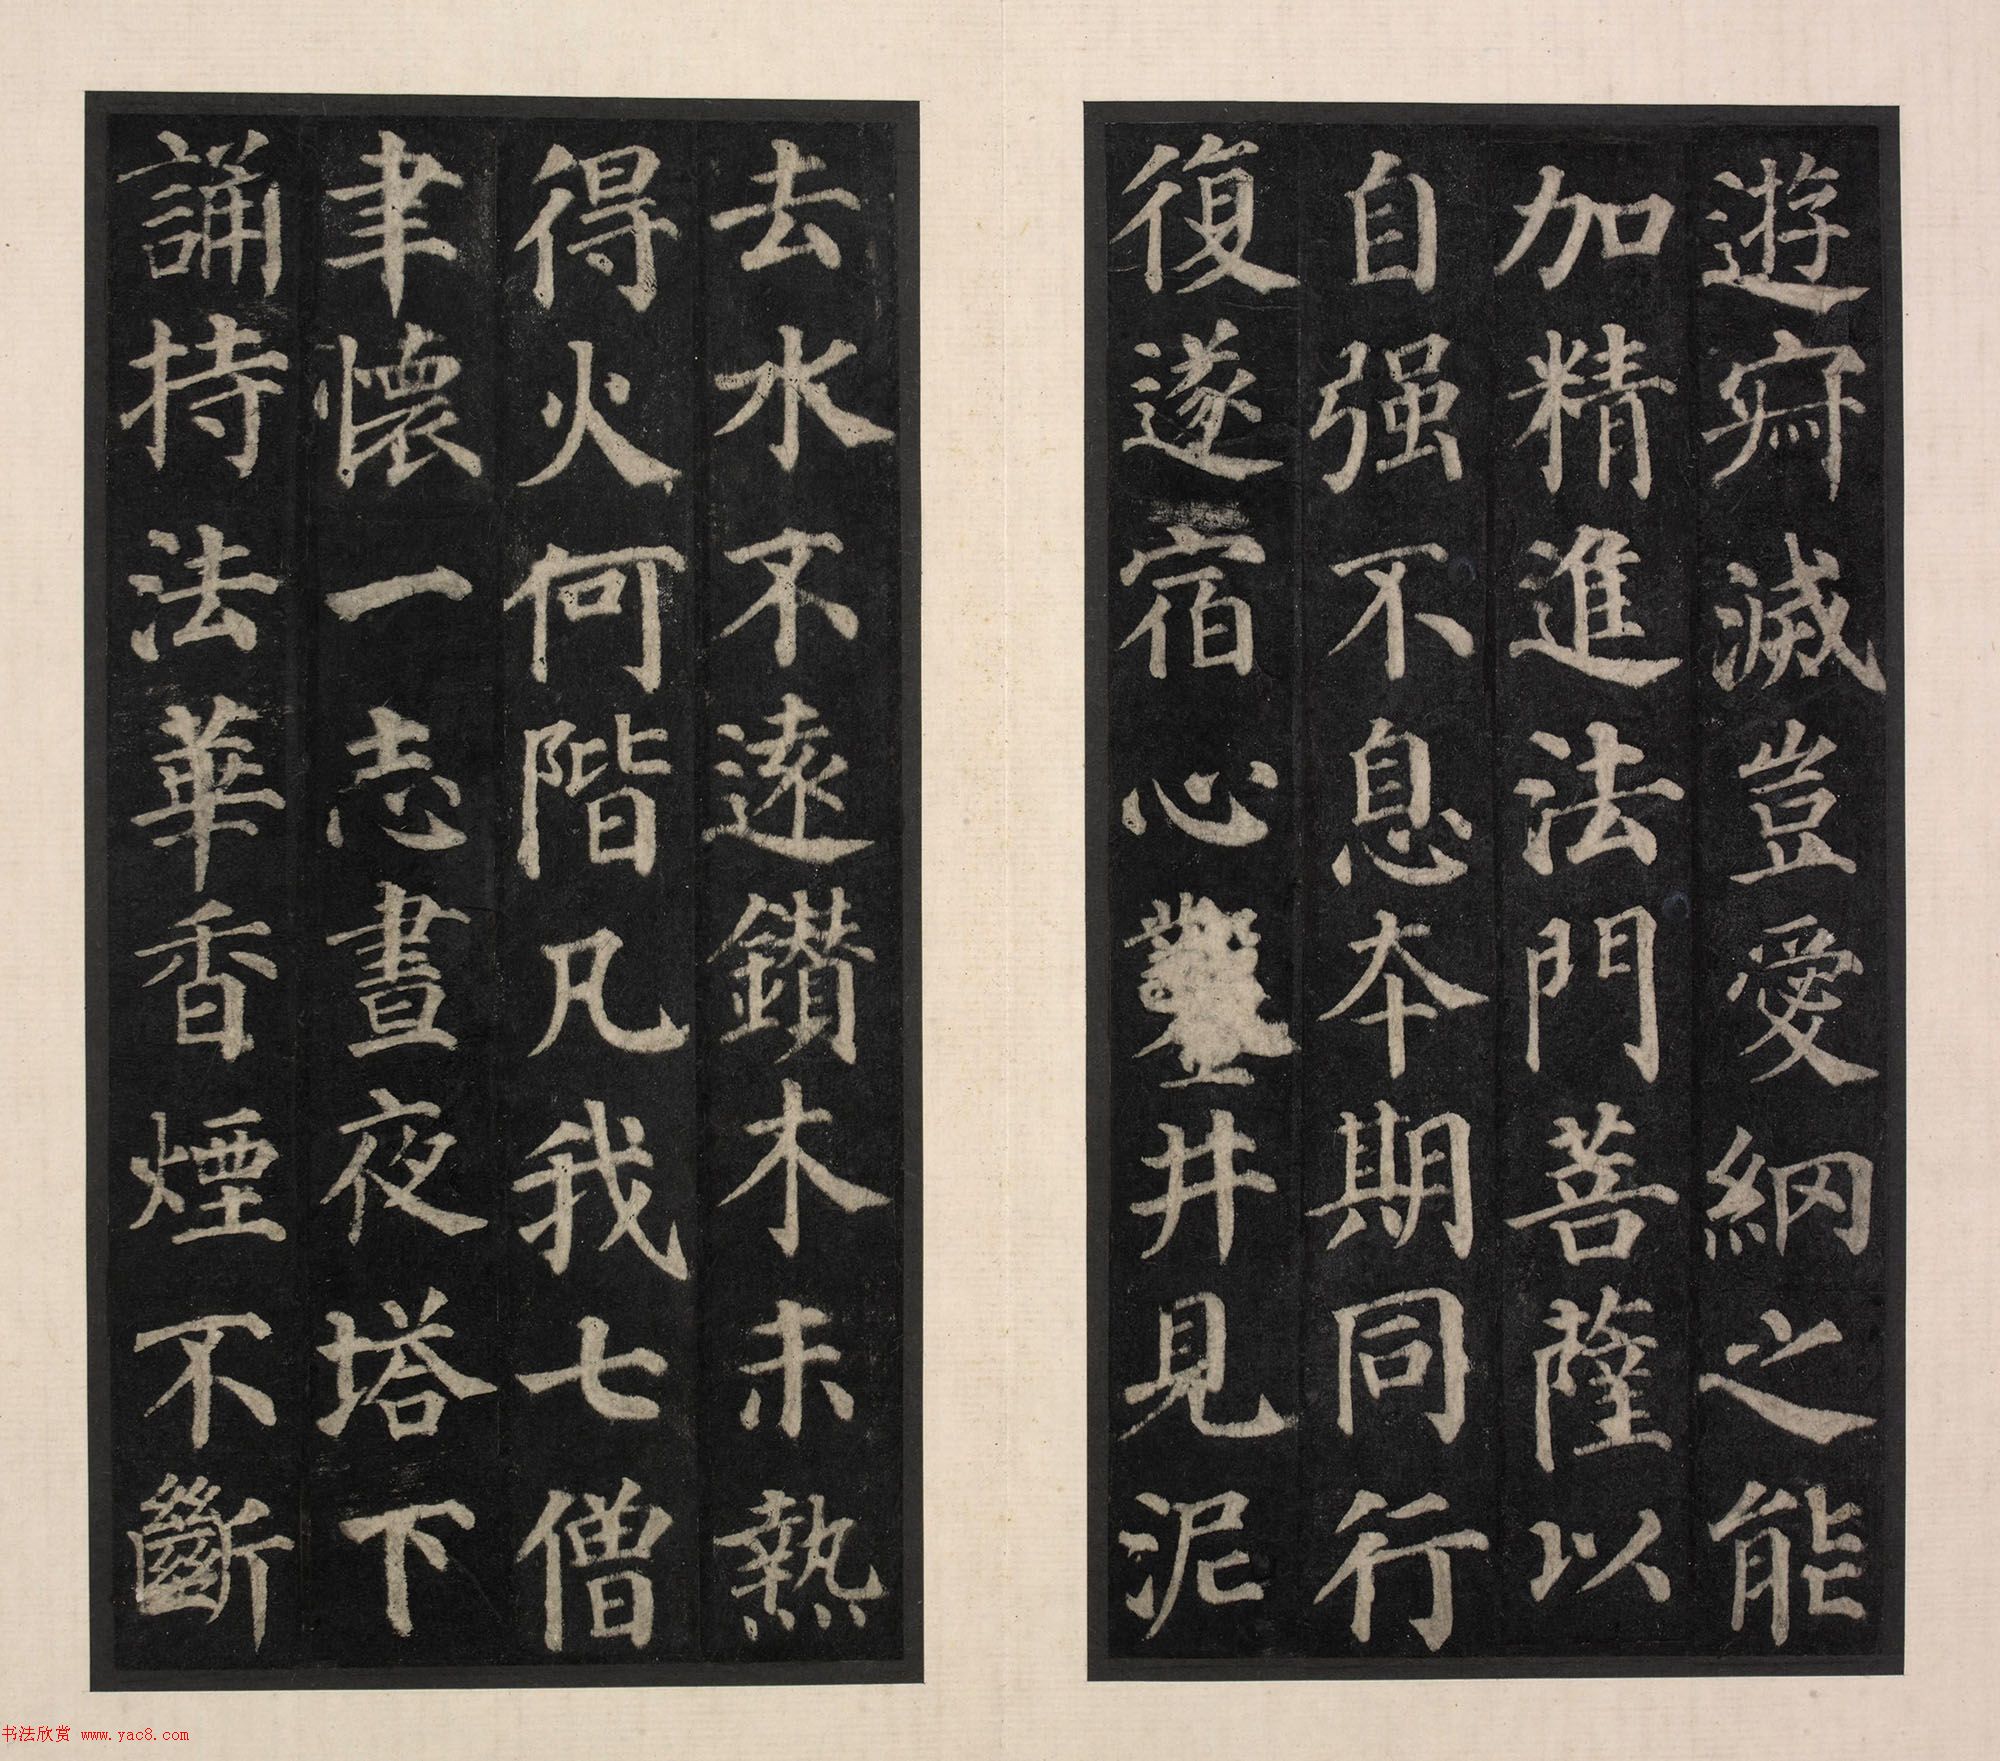 遊寂滅豈愛網之能
加精進法門菩薩以
自强不息本期同行
復遂宿心鑿井見泥
去水不遠鑽木未熱
得火何階凡我七僧
聿懷一志晝夜塔下
誦持法華香煙不斷
书法欣赏 www.yac8.com